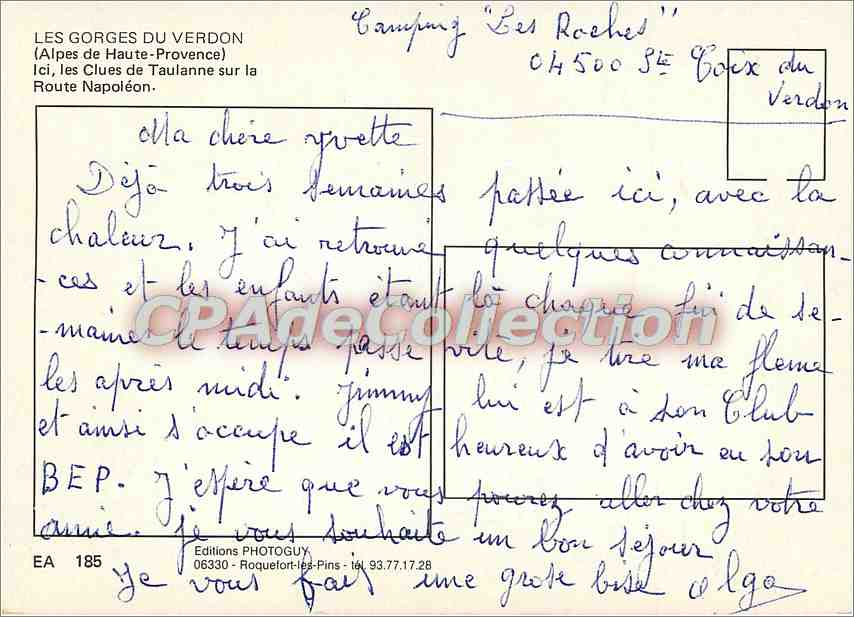 LES GORGES DU VERDON
(Alpes de Haute-Provence)
Ici, les Clues de Taulanne sur la
Route Napoléon.
Camping "Les Roches"
04500 Ste Croix du
Verdon
Ma chère yvette
Déjà trois semaines passée ici, avec la
chaleur. J'ai retrouvé quelques connaissan-
-ces et les enfants étant là chaque fin de se-
-maines le temps passe vite, je tire ma fleme
les après midi. Jimmy lui est à son Club
et ainsi s'occupe il est heureux d'avoir eu son
BEP. J'espère que vous pourez aller chez votre
amie. je vous souhaite un bon séjour
Je vous fais une grose bise Olga
CPAdeCollection
EA 185
Editions PHOTOGUY
06330 - Roquefort-les-Pins - tél. 93.77.17.28